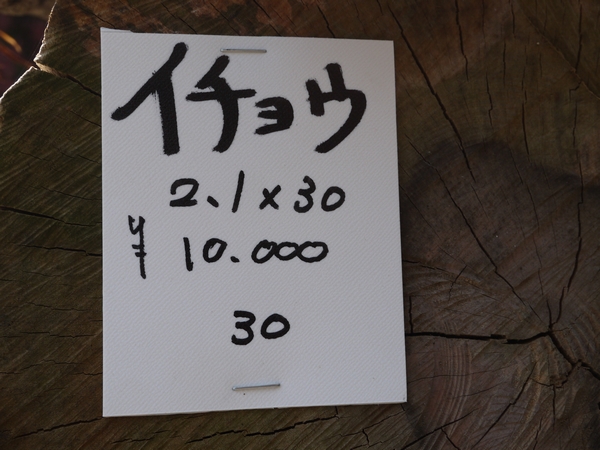 イチョウ
2.1×30
¥ 10.000
30